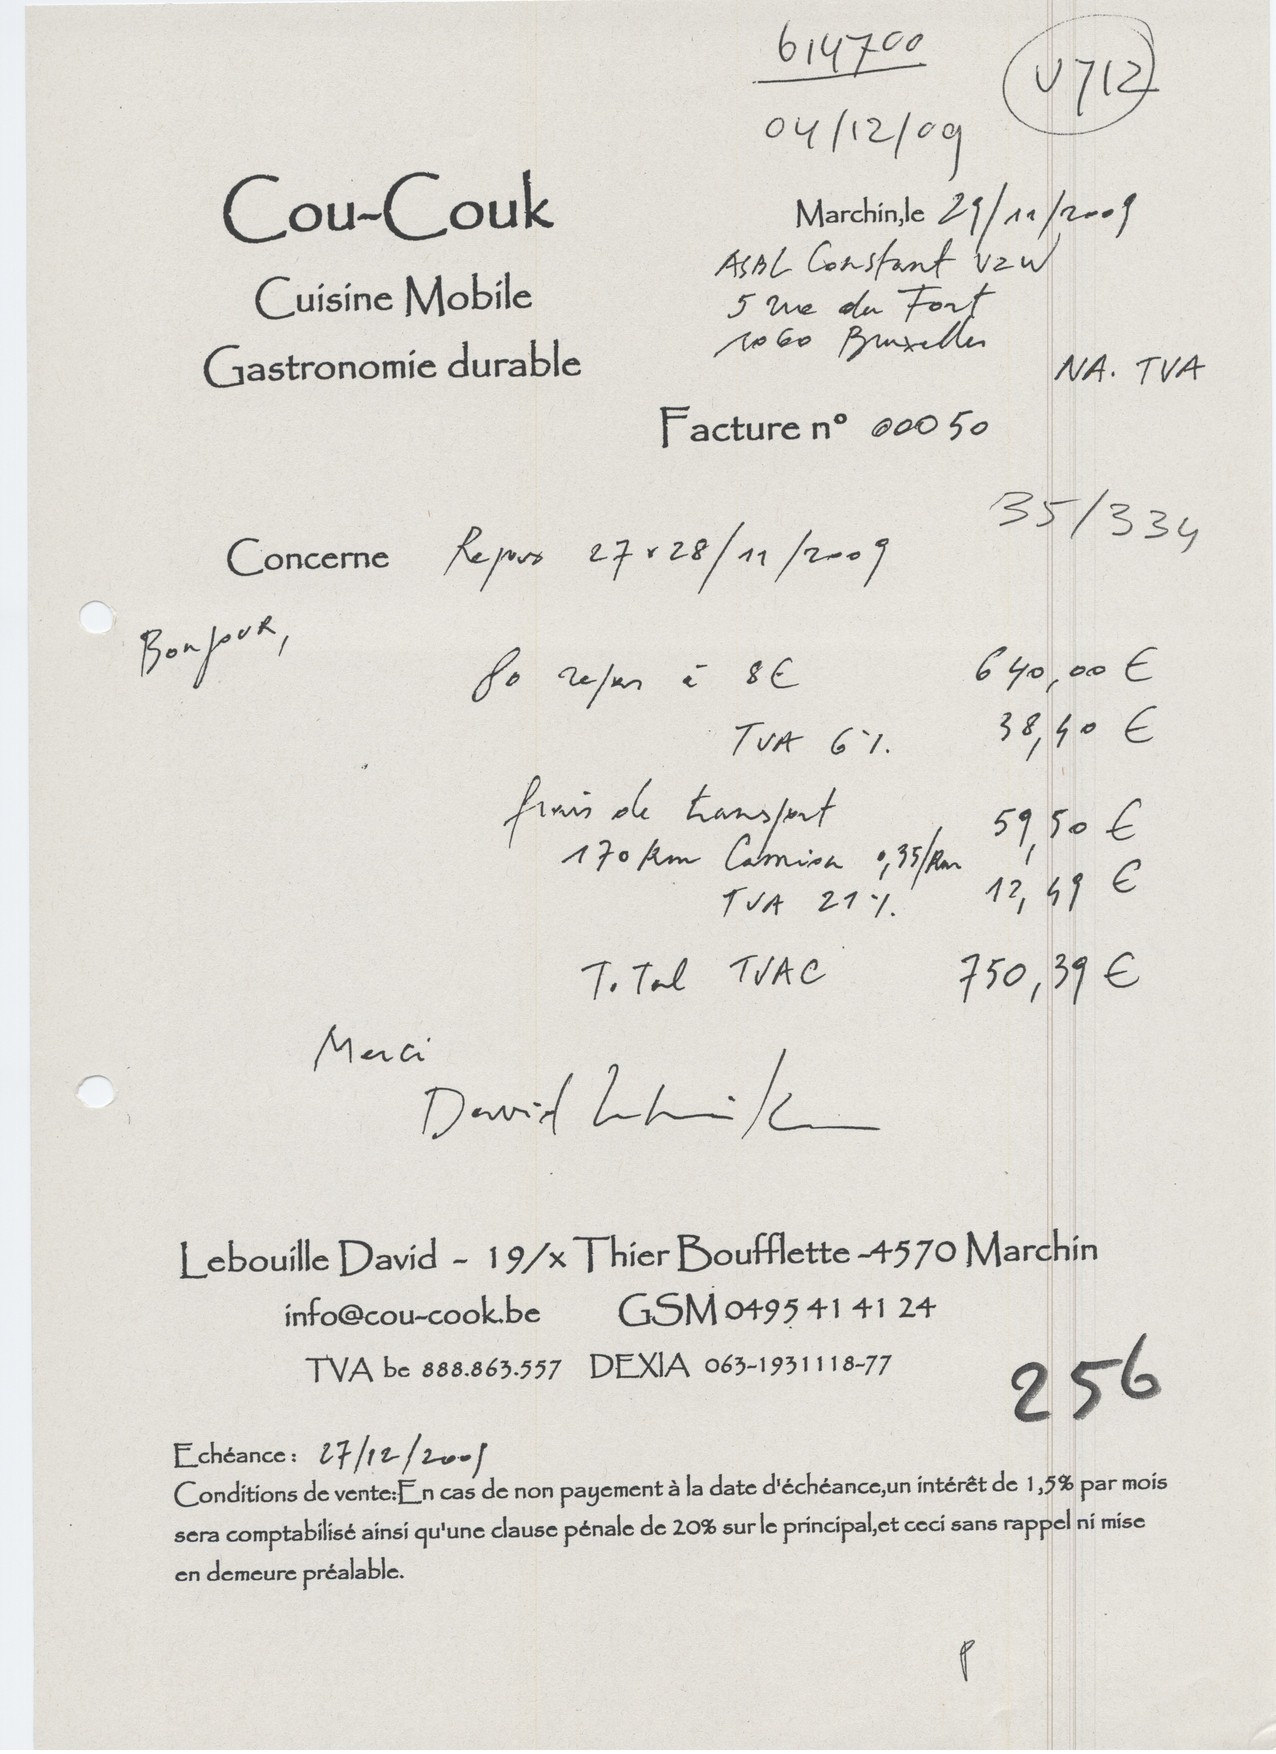 614700
V712
04/12/09
Cou-Couk
Cuisine Mobile
Gastronomie durable
Marchin,le 29/11/2009
ASBL Constant VZW
5 rue du Fort
1060 Bruxelles
NA. TVA
Facture n° 00050
35/334
Concerne Repas 27+28/11/2009
Bonjour,
80 repas à 8€ 640,00 €
TVA 6%. 38,40 €
frais de transport 59,50 €
170 km Camion 0,35/km
TVA 21%. 12,49 €
Total TVAC 750,39 €
Merci
David
Lebouille David - 19/x Thier Boufflette -4570 Marchin
info@cou-cook.be GSM 0495 41 41 24
TVA be 888.863.557 DEXIA 063-1931118-77
256
Echéance: 27/12/2009
Conditions de vente:En cas de non payement à la date d'échéance,un intérêt de 1,5% par mois
sera comptabilisé ainsi qu'une clause pénale de 20% sur le principal,et ceci sans rappel ni mise
en demeure préalable.